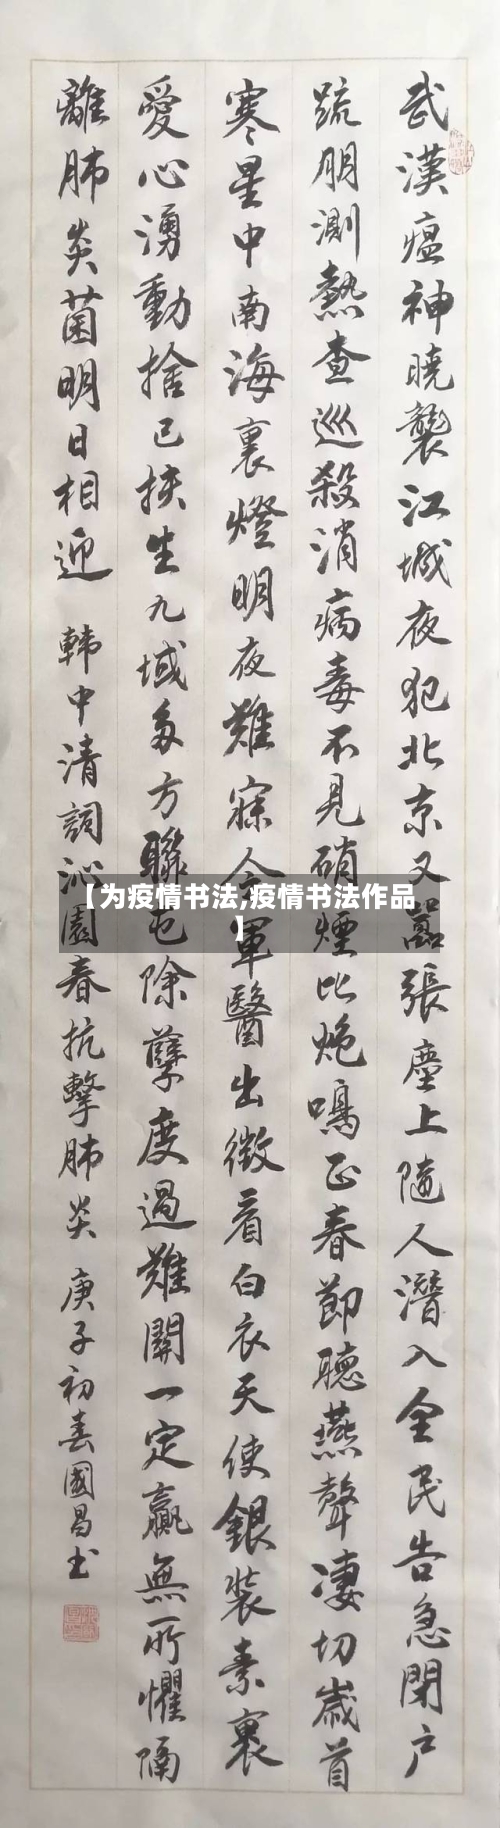 武漢瘟神曉襲江城夜犯北京又囂張塵上隨人潛入全民告急閉户
疏朋測熱查巡殺消病毒不見硝煙比炮鳴正春節聽燕聲淒切歲首
寒星中南海裏燈明夜難寐令軍醫出徵看白衣天使銀裝素裹
愛心湧動捨己扶生九域多方聯屯除孽度過難關一定贏無所懼隔
離肺炎菌明日相迎 韓中清詞沁園春抗擊肺炎 庚子初春國昌书
【为疫情书法,疫情书法作品
】